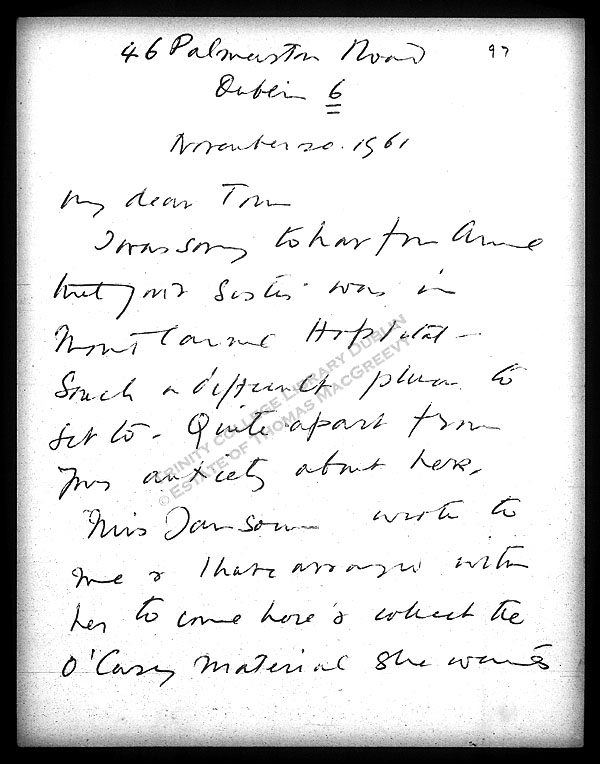 46 Palmerston Road 97
Dublin 6
November 20. 1961
My dear Tom
I was sorry to hear from Anne
that your sister was in
Mount Carmel Hospital -
Such a difficult place to
get to - Quite apart from
your anxiety about her.
Miss Jansom wrote to
me & I have arranged with
her to come here & collect the
O'Casey material she wants
TRINITY COLLEGE LIBRARY DUBLIN
© ESTATE OF THOMAS MACGREEVY